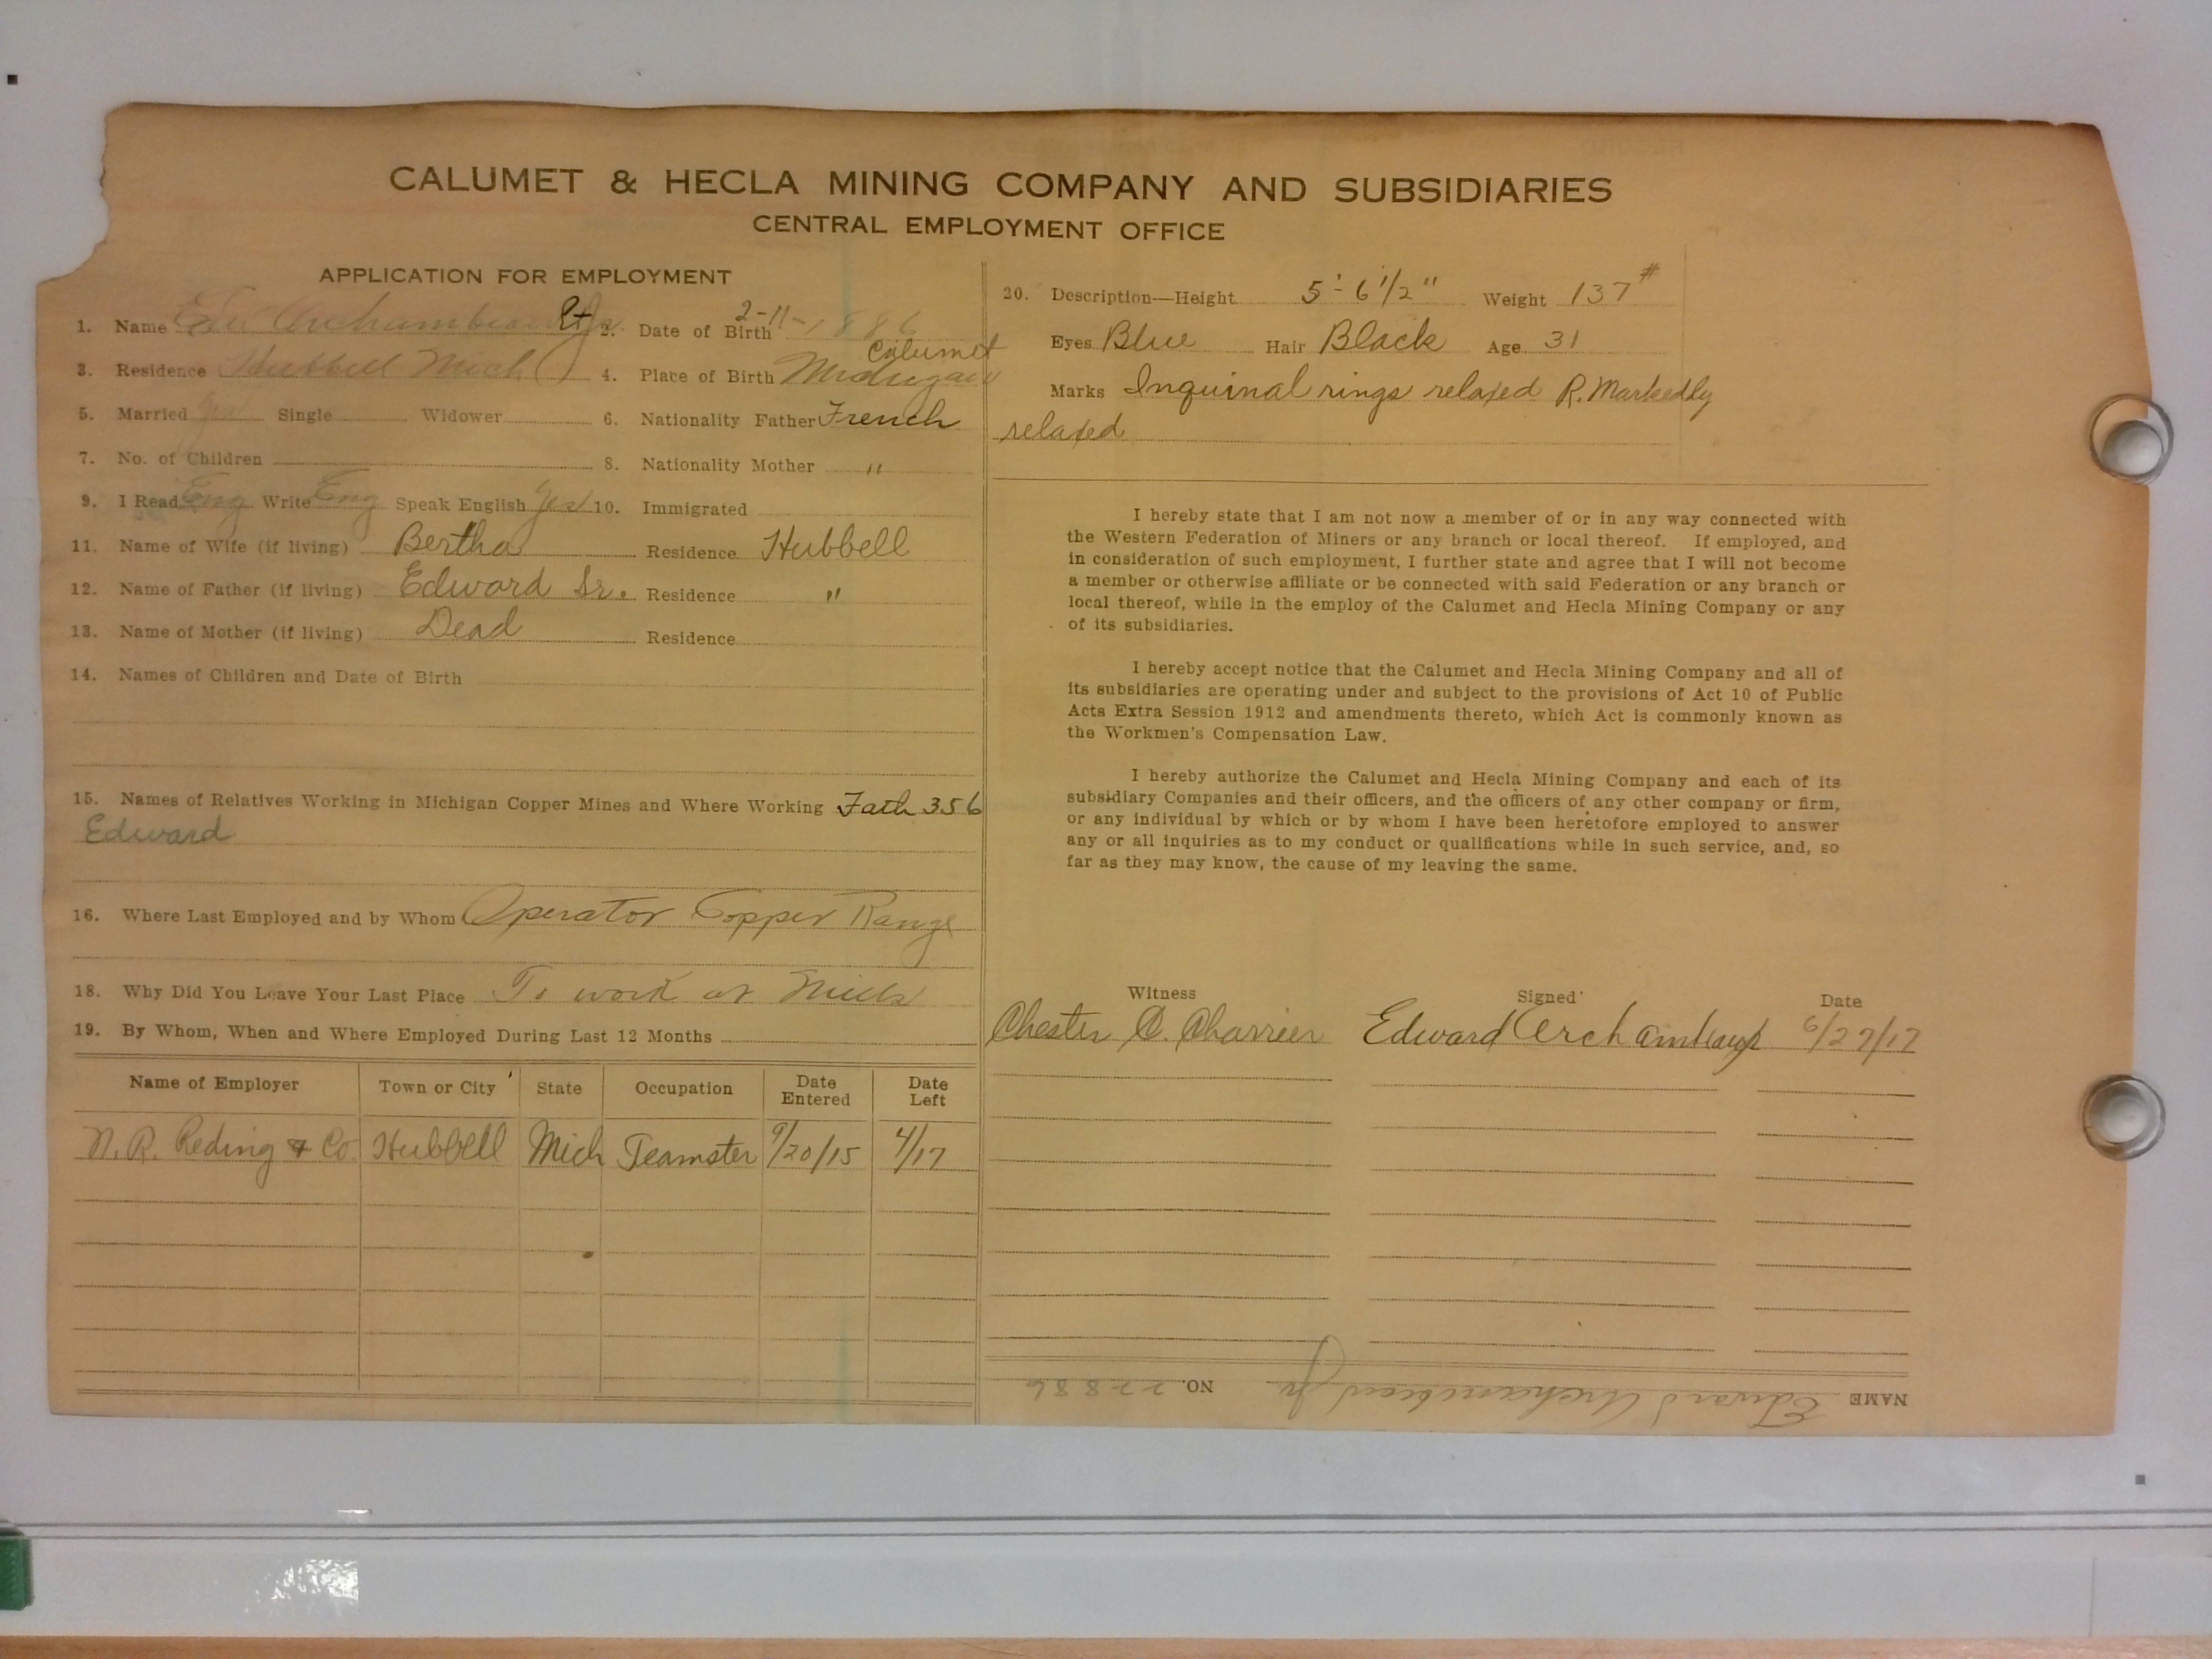 CALUMET & HECLA MINING COMPANY AND SUBSIDIARIES
CENTRAL EMPLOYMENT OFFICE
APPLICATION FOR EMPLOYMENT
1. Name Ed. Archambeau Jr. 2. Date of Birth 2-11-1886
3. Residence Hubbell Mich 4. Place of Birth Calumet Michigan
5. Married Yes Single Widower 6. Nationality Father French
7. No. of Children 8. Nationality Mother "
9. I Read Eng Write Eng Speak English Yes 10. Immigrated
11. Name of Wife (if living) Bertha Residence Hubbell
12. Name of Father (if living) Edward Sr. Residence "
13. Name of Mother (if living) Dead Residence
14. Names of Children and Date of Birth
15. Names of Relatives Working in Michigan Copper Mines and Where Working Fath 356
Edward
16. Where Last Employed and by Whom Operator Copper Range
18. Why Did You Leave Your Last Place To work at Mills
19. By Whom, When and Where Employed During Last 12 Months
Name of Employer Town or City State Occupation Date Entered Date Left
N. R. Reding & Co. Hubbell Mich Teamster 9/20/15 4/17
20. Description—Height 5'-6 1/2" Weight 137#
Eyes Blue Hair Black Age 31
Marks Inquinal rings relaxed R. Markedly
relaxed
I hereby state that I am not now a member of or in any way connected with
the Western Federation of Miners or any branch or local thereof. If employed, and
in consideration of such employment, I further state and agree that I will not become
a member or otherwise affiliate or be connected with said Federation or any branch or
local thereof, while in the employ of the Calumet and Hecla Mining Company or any
of its subsidiaries.
I hereby accept notice that the Calumet and Hecla Mining Company and all of
its subsidiaries are operating under and subject to the provisions of Act 10 of Public
Acts Extra Session 1912 and amendments thereto, which Act is commonly known as
the Workmen's Compensation Law.
I hereby authorize the Calumet and Hecla Mining Company and each of its
subsidiary Companies and their officers, and the officers of any other company or firm,
or any individual by which or by whom I have been heretofore employed to answer
any or all inquiries as to my conduct or qualifications while in such service, and, so
far as they may know, the cause of my leaving the same.
Witness Signed Date
Chester C. Charrier Edward Archambeau 6/27/17
NAME Edward Archambeau Jr NO. 22886